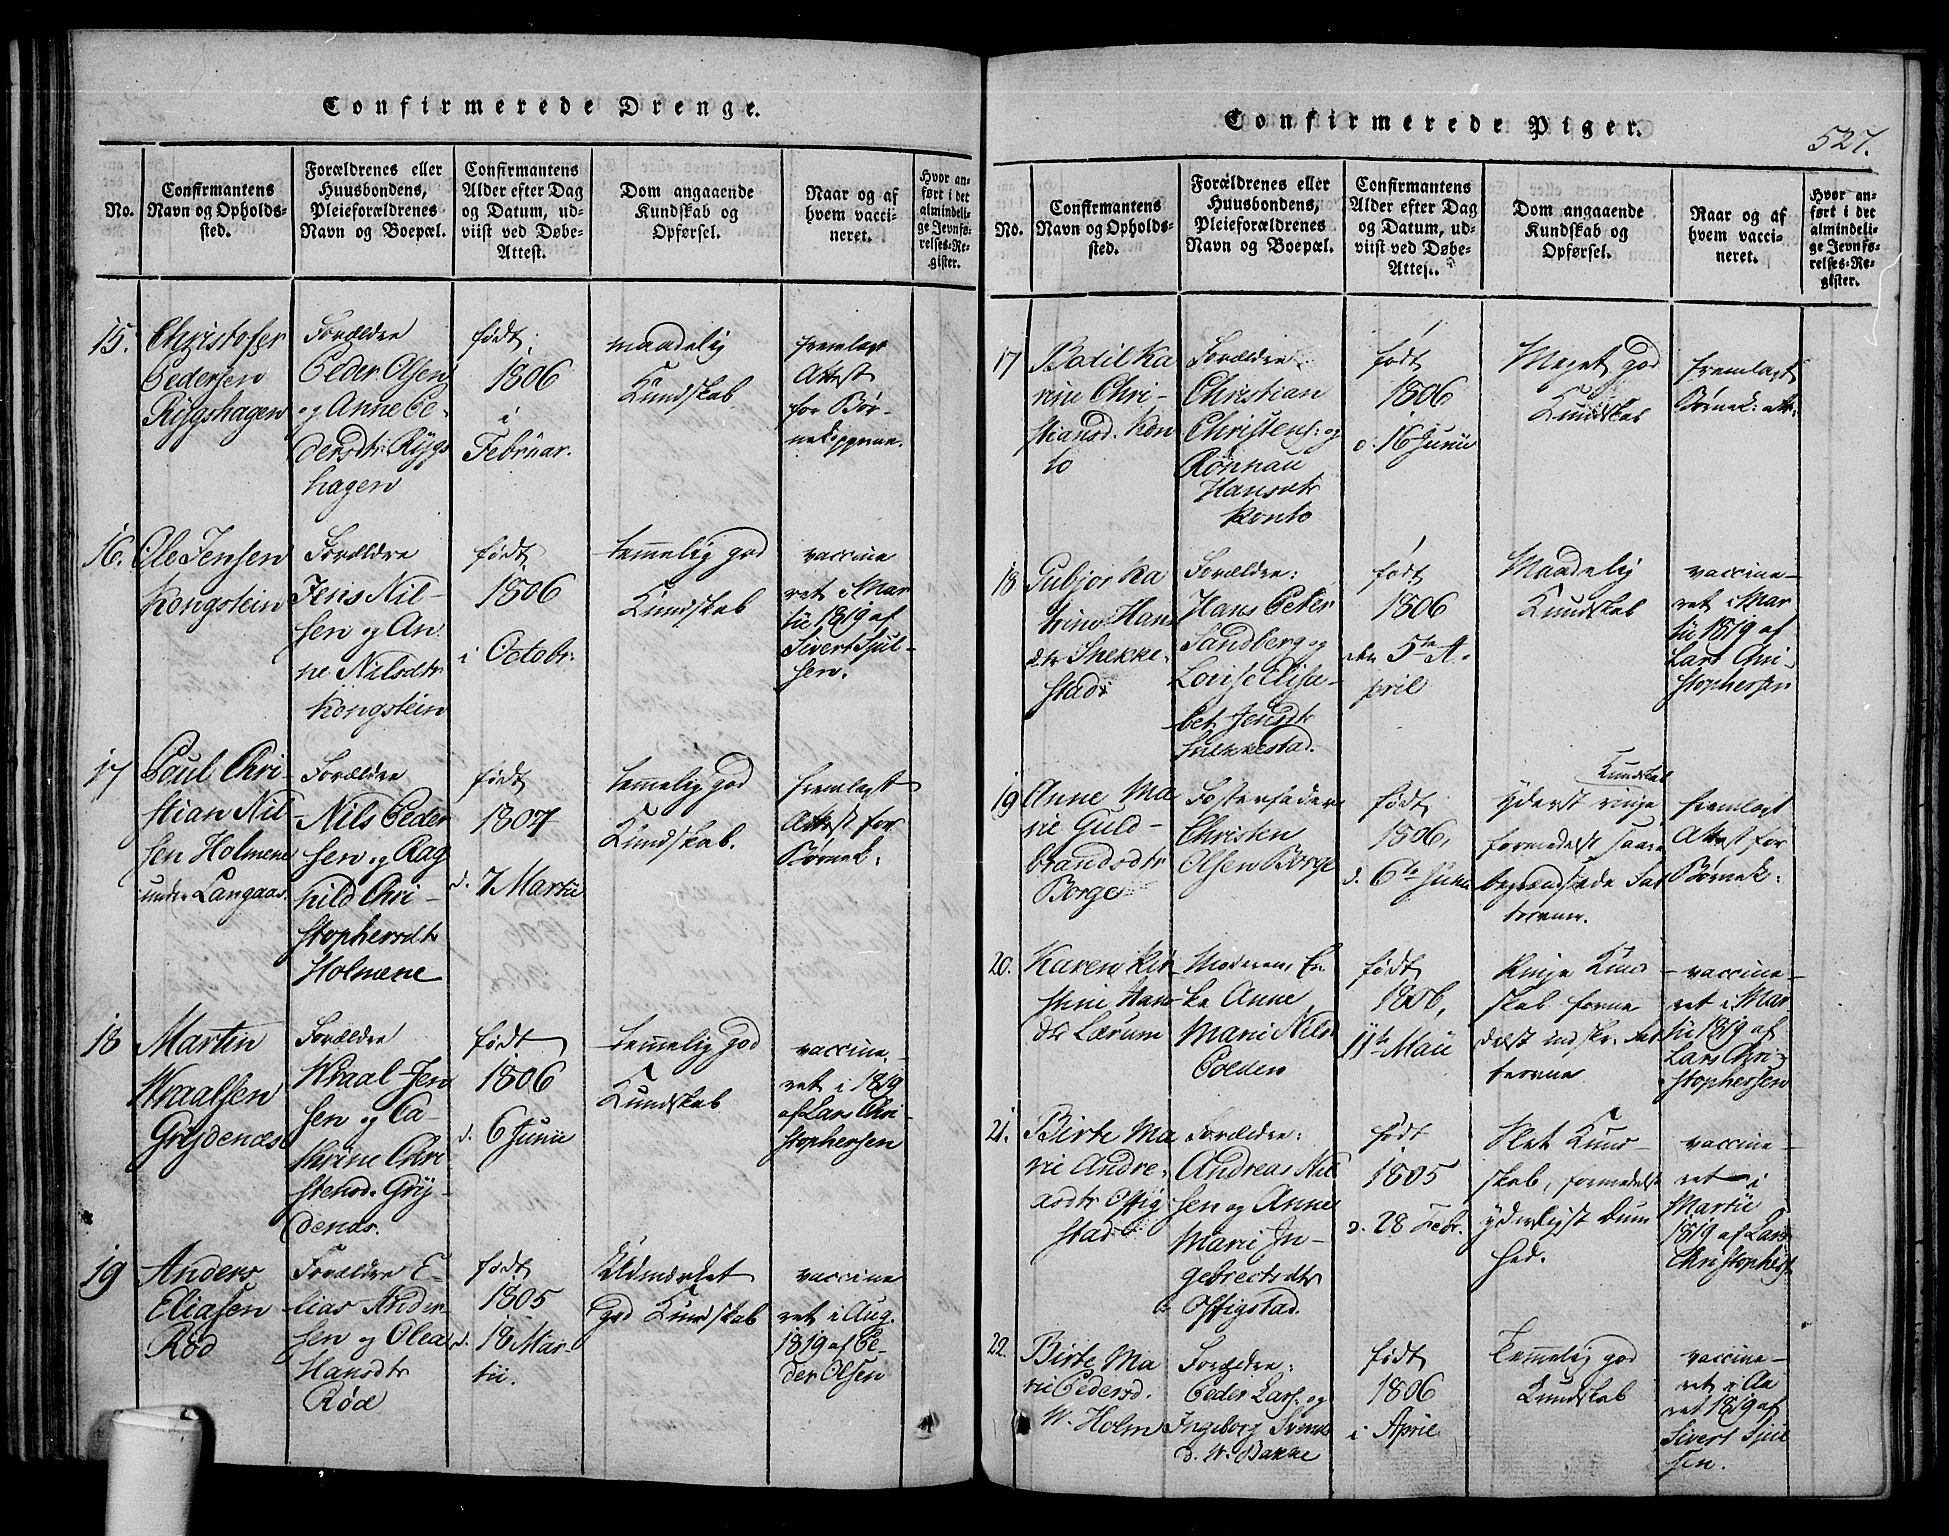 Confirmerede Drenge.
No.
Confirmantens
Navn og Opholds-
sted.
Forældrenes eller
Huusbondens,
Pleieforældrenes
Navn og Boepæl.
Confirmantens
Alder efter Dag
og Datum, ud-
viist ved Døbe-
Attest.
Dom angaaende
Kundskab og
Opførsel.
Naar og af
hvem vacci-
neret.
Hvor an-
ført i det
almindeli-
ge Jevnfø-
relses-Re-
gister.
15.
Christoffer
Pedersen
Ryggshagen
Forældre
Peder Olsen
og Anne Pe-
dersdtr Rygs
hagen
født
1806
i
Februar.
maadelig
Kundskab
fremlagt
Attest
for Bør-
nekopperne.
16.
Ole Jensen
Kongstein
Forældre
Jens Nil-
sen og An-
ne Nilsdtr
Kongstein
født
1806
i Octobr:
temmelig god
Kundskab
vaccine
ret i Mar
tii 1819 af
Sivert Sjul-
sen.
17
Poul Chri-
stian Nil
sen Holmene
under Langaas.
Forældre
Nils Peder
sen og Rag
hild Chri-
stophersdtr
Holmene
født
1807
d. 7 Martii
temmelig god
Kundskab.
fremlagt
Attest for
Børnek:
18
Martin
Wraalsen
Grydenæs
Forældre
Wraal Jen
sen og Ca-
thrine Chri
stensd. Gry-
denæs.
født
1806
d. 6 Junii
temmelig god
Kundskab
vaccine-
ret i 1819
af Lars Chri
stophersen
19
Anders
Eliasen
Rød
Forældre E-
lias Ander-
sen og Olea
Hansdtr
Rød
født
1805
d. 18 Mar-
tii.
Udmærket
god Kundskab
vaccine
ret i Aug.
1819 af Pe-
der Olsen
Confirmerede Piger.
527.
No.
Confirmantens
Navn og Opholds-
sted.
Forældrenes eller
Huusbondens,
Pleieforældrenes
Navn og Boepæl.
Confirmantens
Alder efter Dag
og Datum, ud-
viist ved Døbe-
Attest.
Dom angaaende
Kundskab og
Opførsel.
Naar og af
hvem vacci-
neret.
Hvor an-
ført i det
almindeli-
ge Jevnfø-
relses-Re-
gister.
17
Bodil Ka
rine Chri-
stiansd. Kon
to
Forældre
Christian
Christens: og
Rønnau
Hansdtr
Konto
født
1806
d. 16 Junii
Meget god
Kundskab
fremlagt
Børnek:
18
Gubjor Ka
trine Hans
dtr Snekke-
stad
Forældre:
Hans Peter
Sandberg og
Lovise Elisa-
bet Jensdtr
Snekkestad.
født
1806
den 5te A-
pril
Maadelig
Kundskab
vaccine-
ret i Mar
tii 1819 af
Lars Chri-
stophersen
19
Anne Ma
rie Guld-
brandsdtr
Borge
Fosterfader
Christen
Olsen Borge
født
1806,
d. 6te Junii
Kundskab
yderst ringe
formedelst saare
begrændsede Fat
teevner.
fremlagt
Attest for
Børnek:
20.
Karen Kir
stine Hans
dtr Lærum
Moderen, En
ke Anne
Marie Nilsd
Polden
født
1806,
11te Maii
Ringe Kund
skab forme
delst indskr: Fat
teevne
vaccine-
ret i Mar
tii 1819 af
Lars Chri-
stophersen
21.
Birte Ma
rie Andre-
asdtr Offig
stad
Forældre:
Andreas Nil
sen og Anne
Marie In-
gebrectsdtr
Offigstad.
født
1805
d. 28 Febr.
Slet Kund
skab, formedelst
yderligst Dum
hed.
vaccine-
ret i
Martii
1819 af Lars
Christophers
22.
Birte Ma
rie Pedersd.
W. Holm
Forældre:
Peder Lars: og
Ingeborg Svends
d. W. Bakke
født
1806
i April
Temmelig god
Kundskab
vaccine-
ret i Aa
ret 1819 af
Sivert Sjul
sen.